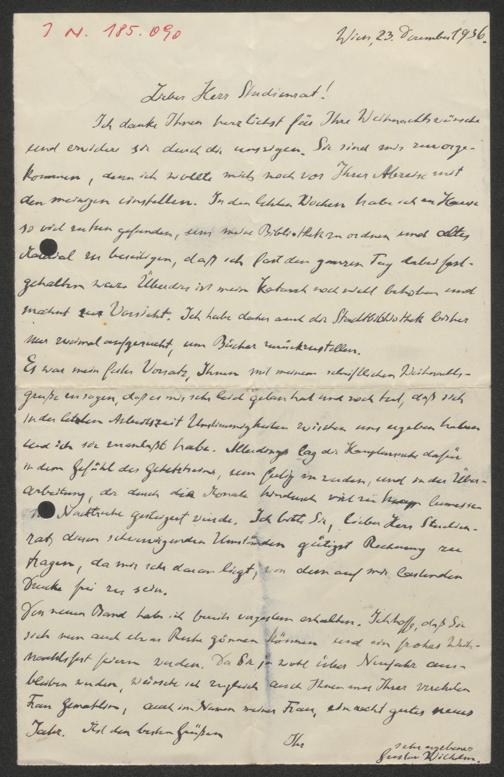 I N. 185.090
Wien, 23. Dezember 1936.
Lieber Herr Studienrat!
Ich danke Ihnen herzlichst für Ihre Weihnachtswünsche
und erwidere sie durch die unsrigen. Sie sind mir zuvorge-
kommen, denn ich wollte mich noch vor Ihrer Abreise mit
den meinigen einstellen. In den letzten Wochen habe ich zu Hause
so viel zu tun gefunden, um meine Bibliothek zu ordnen und altes
zu beseitigen, daß ich fast den ganzen Tag dabei fest-
gehalten war. Überdies ist mein Katarrh noch nicht behoben und
mahnt zur Vorsicht. Ich habe daher auch die Stadtbibliothek bisher
nur zweimal aufgesucht, um Bücher zurückzustellen.
Es war mein fester Vorsatz, Ihnen mit meinem schriftlichen Weihnachts-
gruße zu sagen, daß es mir sehr leid getan hat und noch tut, daß sich
in der letzten Arbeitszeit Unstimmigkeiten zwischen uns ergeben haben
und ich sie veranlaßt habe. Allerdings lag die Hauptursache dafür
in dem Gefühl des Gehetztseins, um fertig zu werden, und in der Über-
arbeitung, die durch die Monate hindurch viel zu bemessene
Nachtruhe gesteigert wurde. Ich bitte Sie, lieber Herr Studien-
rat, diesen schwerwiegenden Umständen gütigst Rechnung zu
tragen, da mir sehr daran liegt, von dem auf mir lastenden
Drucke frei zu sein.
Den neuen Band habe ich bereits vorgestern erhalten. Ich hoffe, daß Sie
sich nun auch etwas Ruhe gönnen können und ein frohes Weih-
nachtsfest feiern werden. Da Sie ja wohl über Neujahr aus-
bleiben werden, wünsche ich zugleich auch Ihnen und Ihrer verehrten
Frau Gemahlin, auch im Namen meiner Frau, ein recht gutes neues
Jahr. Mit den besten Grüßen
Ihr
sehr ergebener
Gustav Wilhelm.